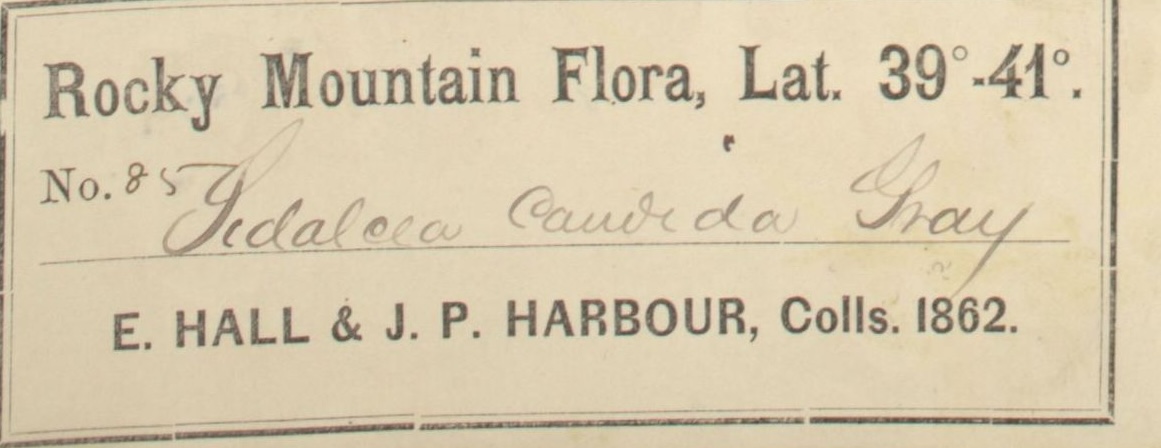 Rocky Mountain Flora, Lat. 39°-41°.
No. 85 Sidalcea candida Gray
E. HALL & J. P. HARBOUR, Colls. 1862.